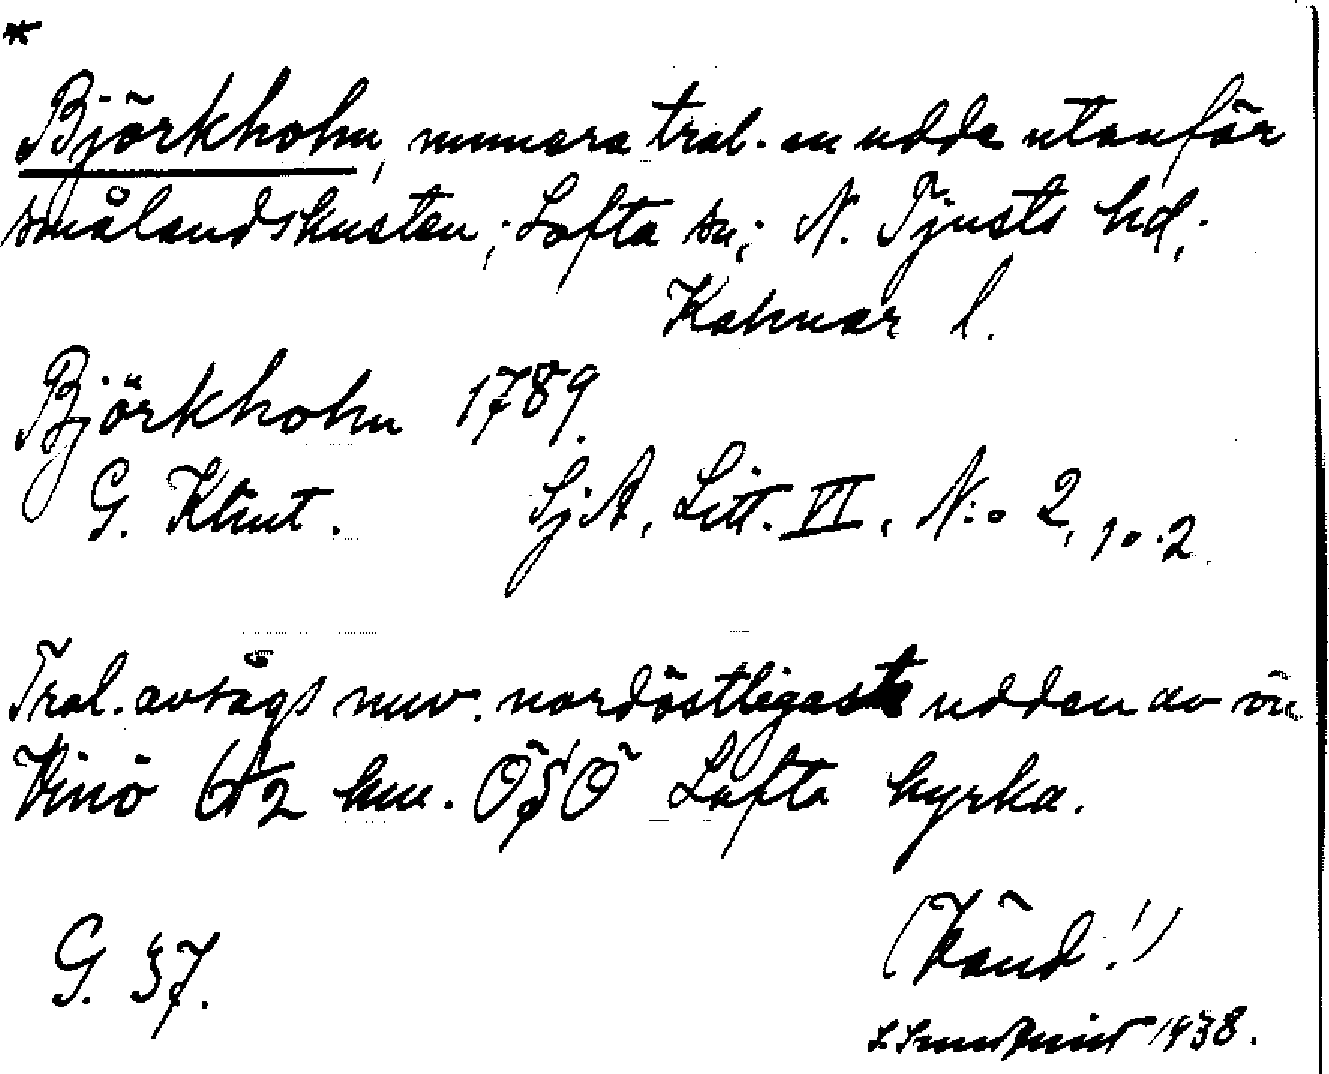 *
Björkholm, numera trol. en udde utanför
smålandskusten; Lofta sn; N. Tjusts hd;
Kalmar l.
Björkholm 1789.
G. Klint. SjA, Litt. VI, N:o 2, 1o.2
Trol. avsågs nuv. nordöstligaste udden av ön
Vinö km. ÖSÖ Lofta kyrka.
(Känd!)
G. 37.
1938.